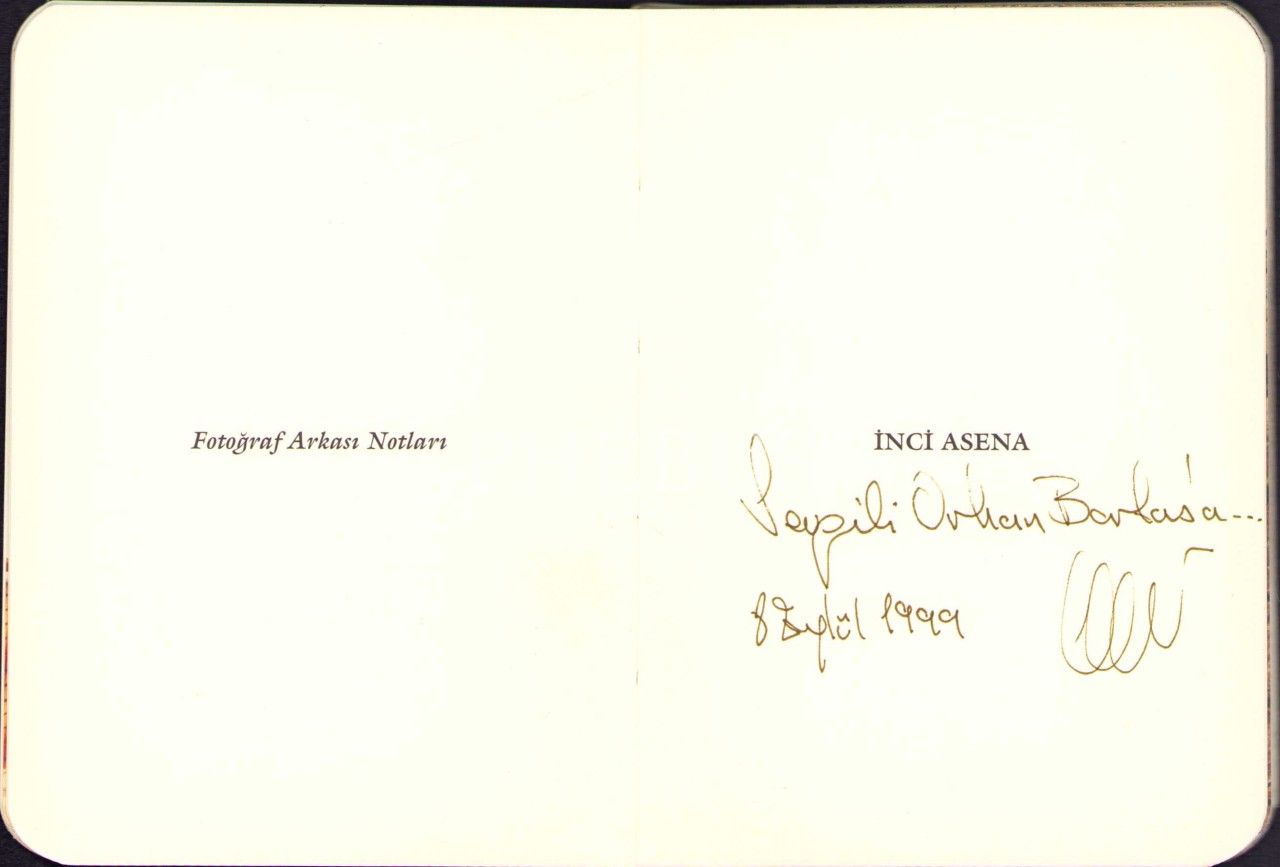 Fotoğraf Arkası Notları
İNCİ ASENA
Sevgili Orhan Barlas'a...
8 Eylül 1999